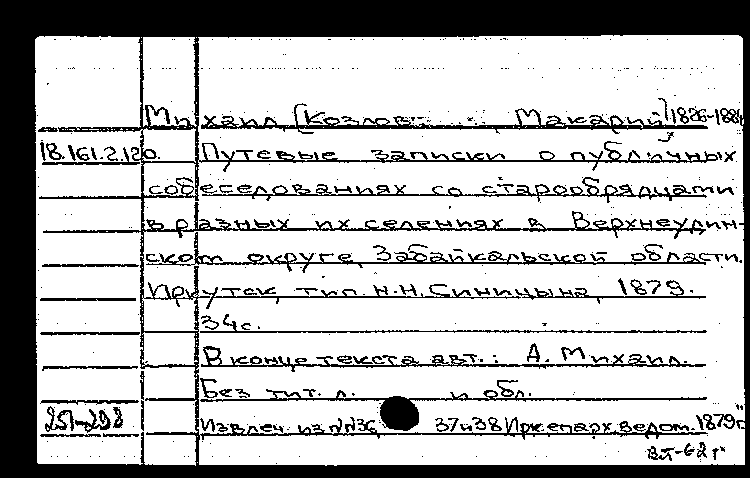 Михаил, [Козлов Макарий] 1826-1884
18.161.2.120. Путевые записки о публичных
собеседованиях со старообрядцами
в разных их селениях в Верхнеудин-
ском округе, Забайкальской области.
Иркутск, тип. Н.Н. Синицына, 1879.
34с.
В конце текста авт.: А. Михаил.
Без тит. л. и обл.
251-298 Извлеч. из №№36, 37 и 38 „Ирк. епарх. ведом. 1879г."